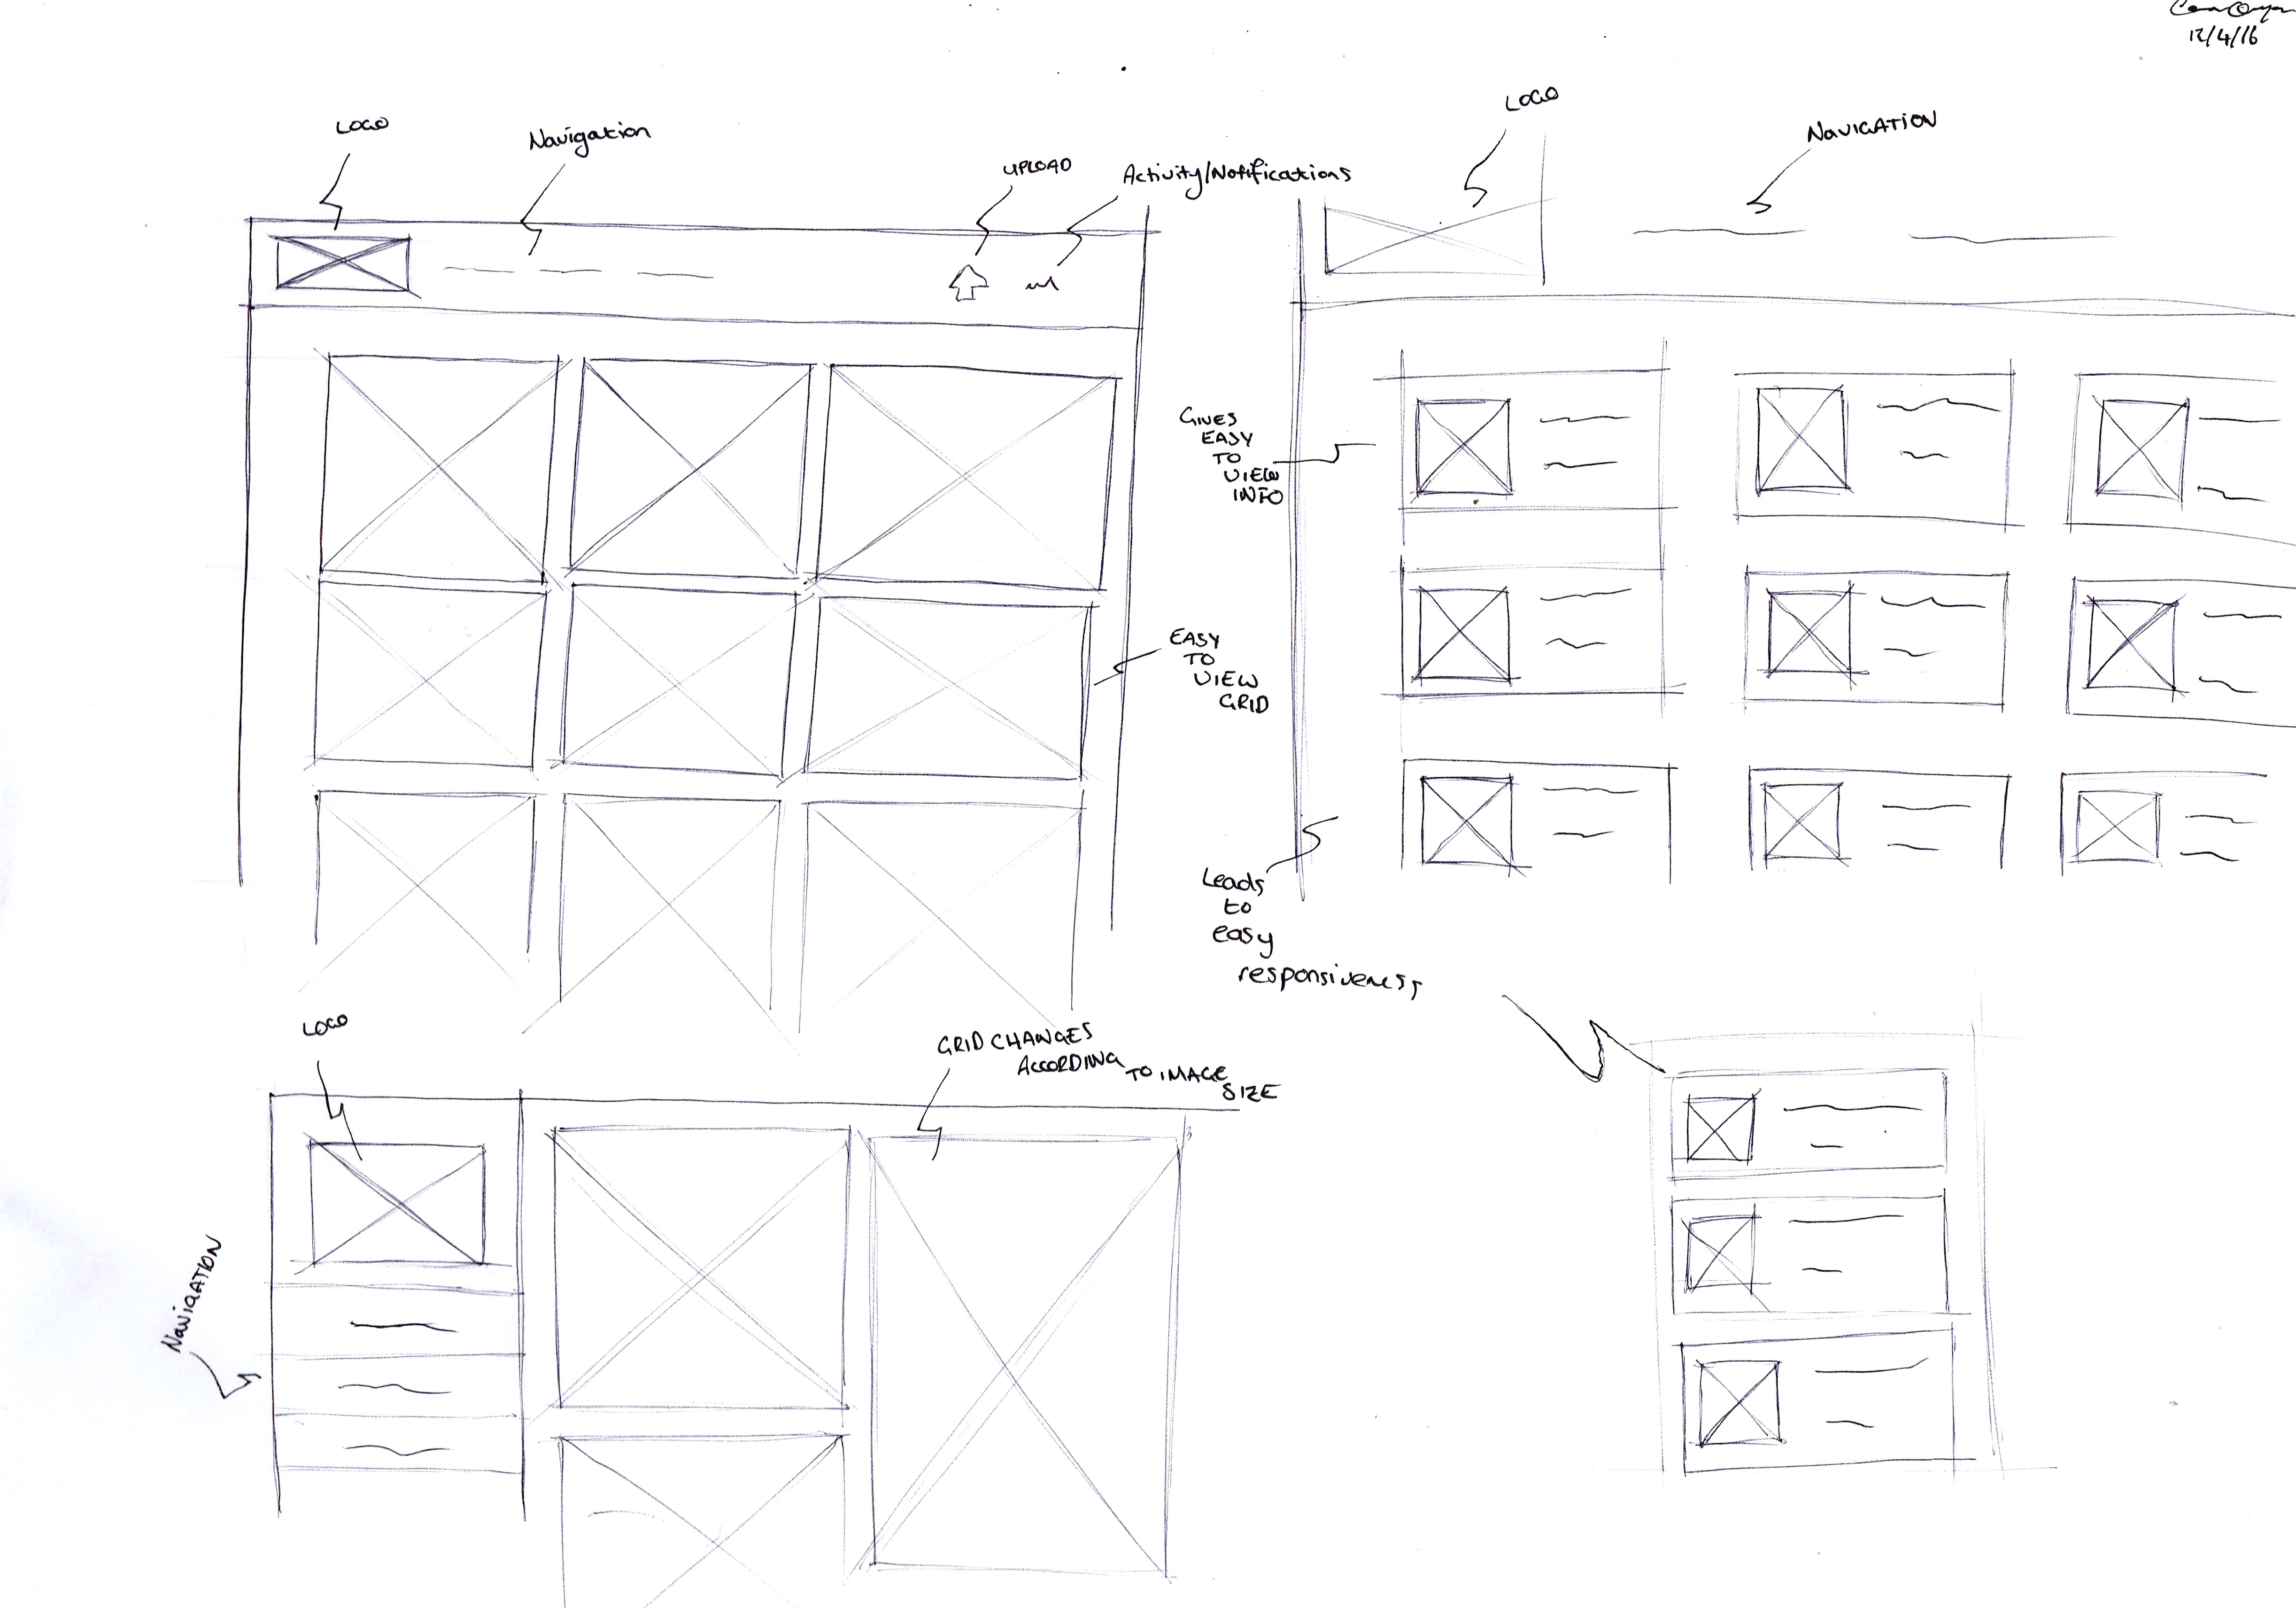 12/4/16
LOGO
Navigation
UPLOAD
Activity/Notifications
LOGO
NAVIGATION
GIVES
EASY
TO
VIEW
INFO
EASY
TO
VIEW
GRID
Leads
to
easy
responsiveness
LOGO
GRID CHANGES
ACCORDING
TO IMAGE
SIZE
NAVIGATION